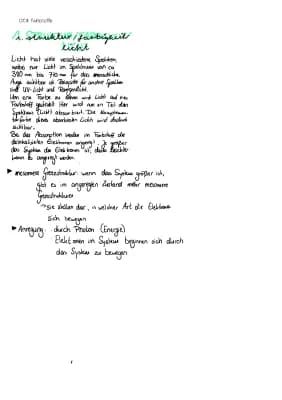 1. Struktur / Farbigkeit
Licht
Licht hat viele verschiedene Spektren,
wobei nur Licht im Spektrum von ca
380 nm bis 710 nm für das menschliche
Auge sichtbar ist. Beispiele für andere Spektren
sind UV-Licht und Röntgenlicht.
Um eine Farbe zu sehen wird Licht auf den
Farbstoff gestrahlt. Hier wird nun ein Teil des
Spektrums (Licht) absorbiert. Die Komplementärfarbe
dieses absorbierten Lichts wird dadurch
sichtbar.
Bei der Absorption werden im Farbstoff die
delokalisierten Elektronen angeregt. Je größer
das System der Elektronen ist, desto leichter
kann es angeregt werden.
▶ mesomere Grenzstruktur: wenn das System größer ist,
gibt es im angeregten Zustand mehr mesomere
Grenzstrukturen
→ sie stellen dar, in welcher Art die Elektronen
sich bewegen
▶ Anregung: durch Photon (Energie)
Elektronen im System beginnen sich durch
das System zu bewegen